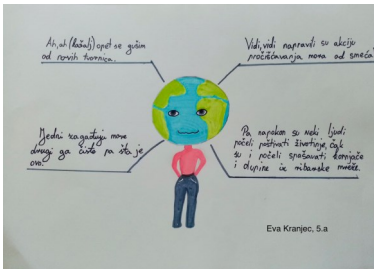 Ah, ah (kašalj) opet se gušim
od novih tvornica.
Vidi, vidi napravili su akciju
pročišćavanja mora od smeća!
Jedni zagađuju more
drugi ga čiste pa šta je
ovo.
Pa napokon su neki ljudi
počeli poštivati životinje, čak
su i počeli spašavati kornjače
i dupine iz ribarske mreže.
Eva Kranjec, 5.a